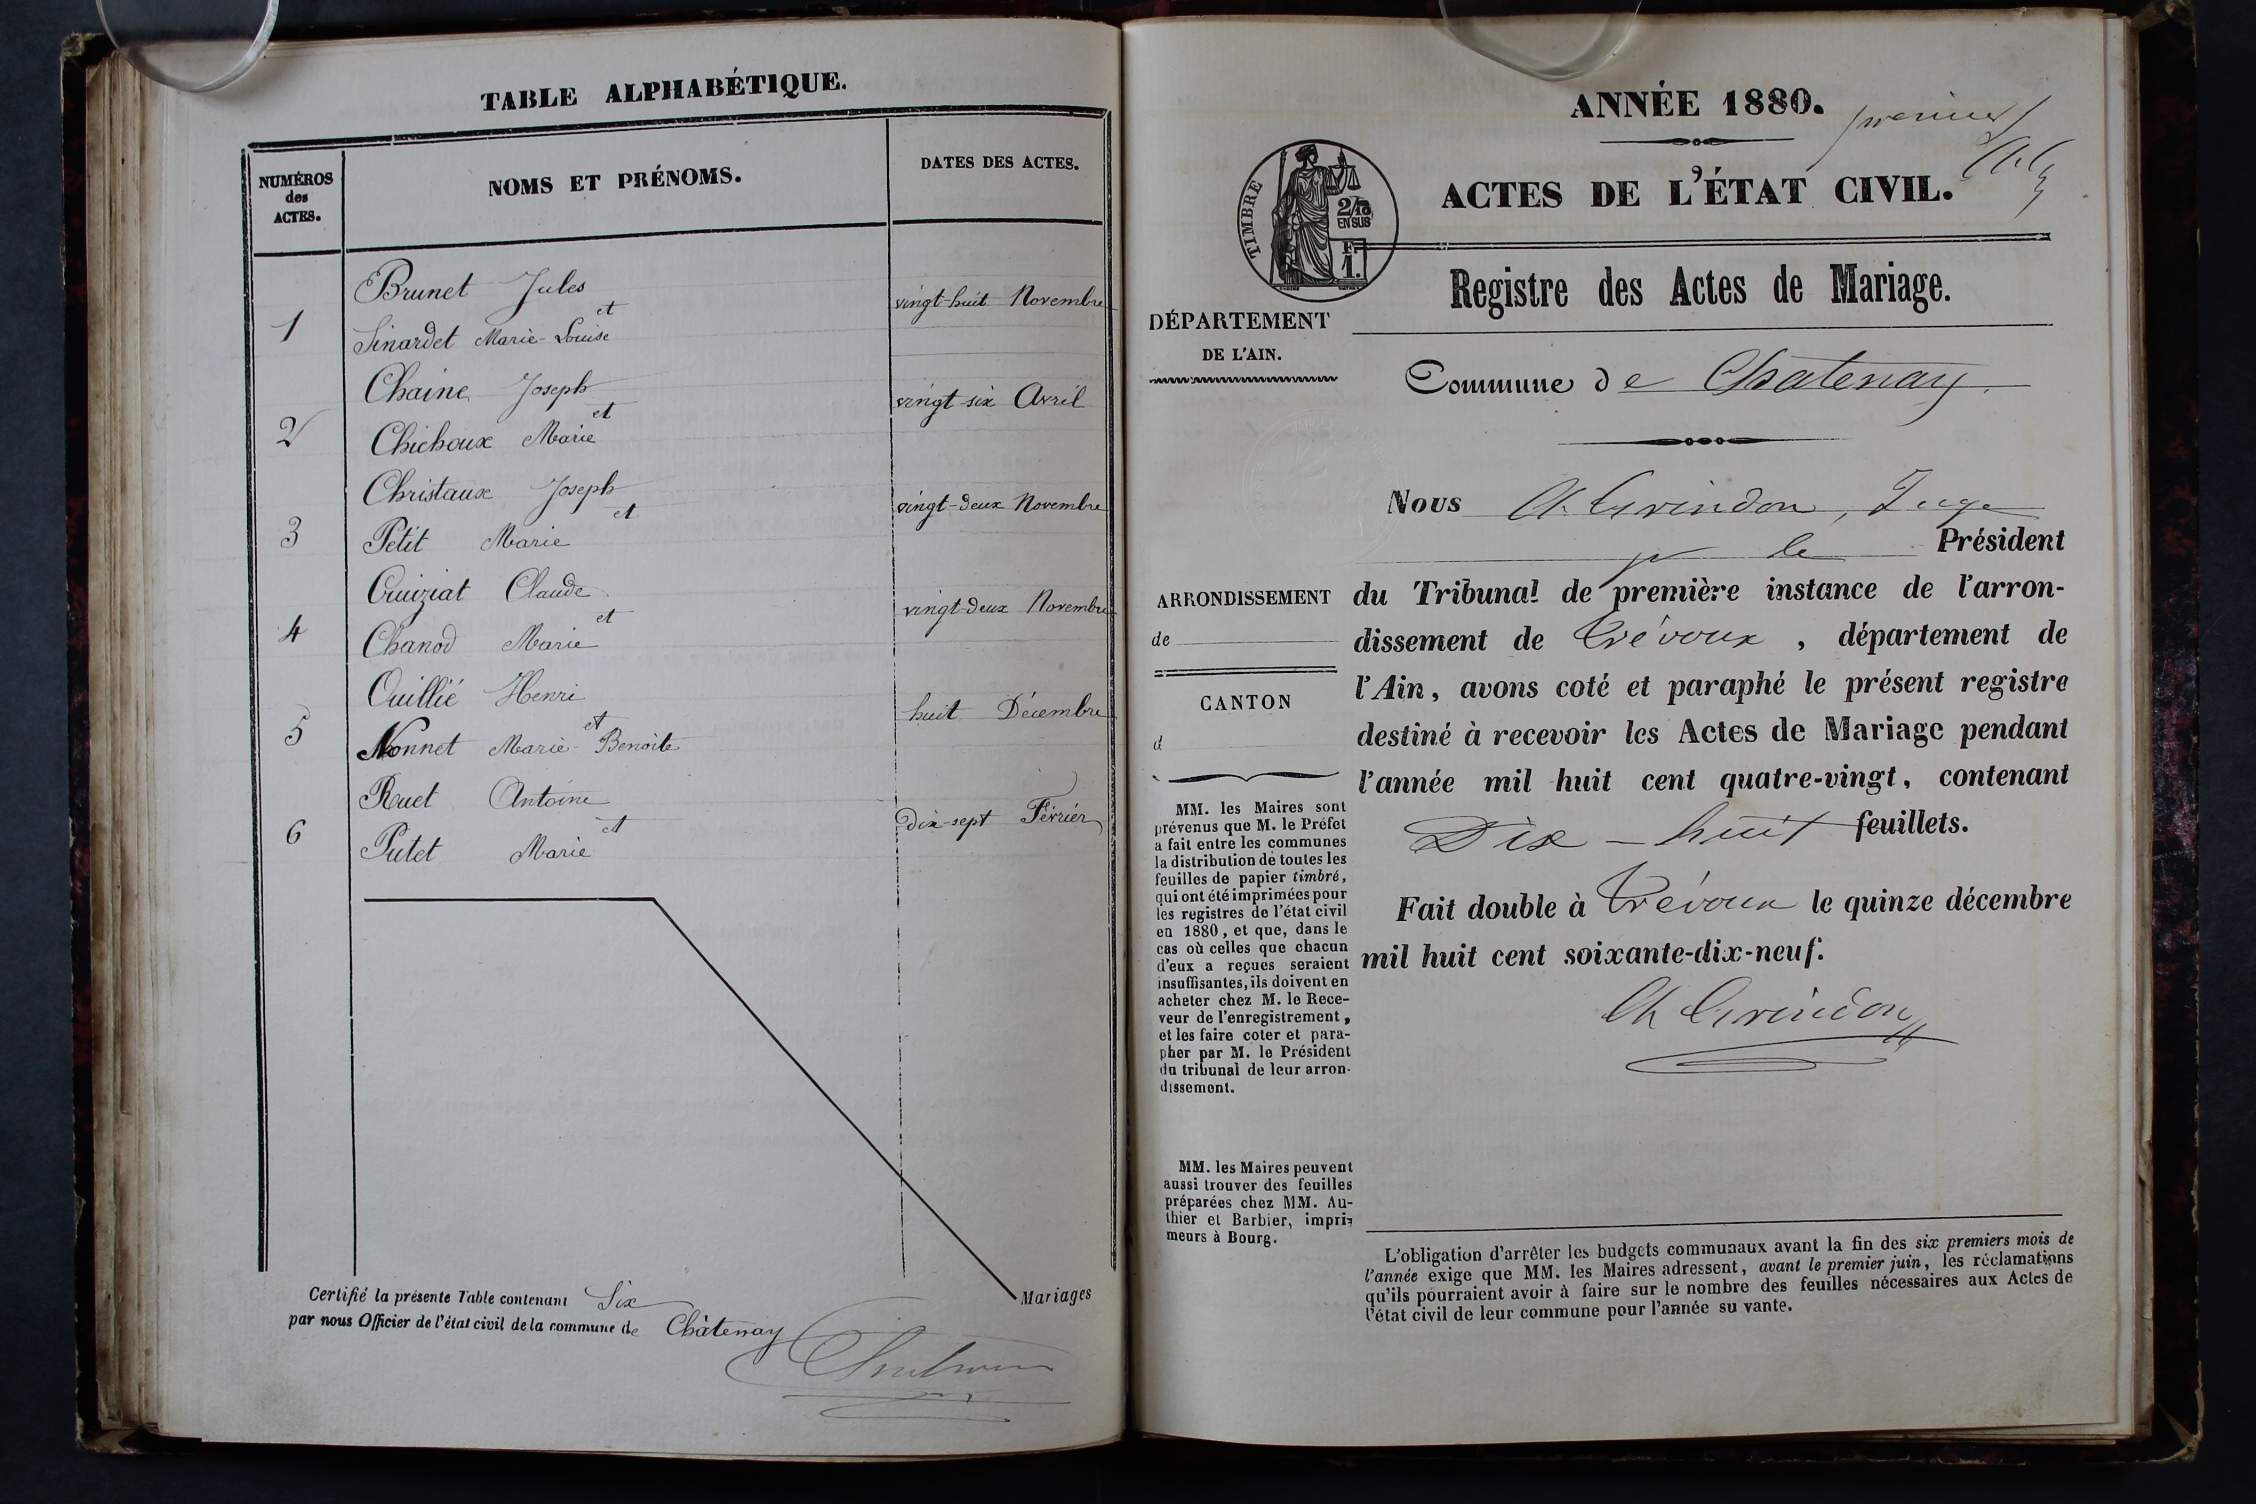 TABLE ALPHABÉTIQUE.
NUMÉROS
des
ACTES.
NOMS ET PRÉNOMS.
DATES DES ACTES.
Brunet Jules
et
1
vingt-huit Novembre
Sinardet Marie-Louise
Chaine Joseph
et
2
vingt-six Avril
Chichoux Marie
Christaux Joseph
et
3
vingt-deux Novembre
Petit Marie
Cuiziat Claude
et
4
vingt-deux Novembre
Chanod Marie
Cuillié Henri
et
5
huit Décembre
Monnet Marie-Benoite
Ruet Antoine
et
6
dix-sept Février
Putet Marie
Certifié la présente Table contenant Six Mariages
par nous Officier de l'état civil de la commune de Châtenay
ANNÉE 1880.
premier
ACTES DE L'ÉTAT CIVIL.
TIMBRE
2/10
EN SUS
F.
1.
Registre des Actes de Mariage.
DÉPARTEMENT
DE L'AIN.
Commune de Chatenay.
Nous Ch. Grindon, Juge
pr le Président
ARRONDISSEMENT
de
CANTON
d
du Tribunal de première instance de l'arron-
dissement de Trévoux, département de
l'Ain, avons coté et paraphé le présent registre
destiné à recevoir les Actes de Mariage pendant
l'année mil huit cent quatre-vingt, contenant
Dix-huit feuillets.
Fait double à Trévoux le quinze décembre
mil huit cent soixante-dix-neuf.
Ch Grindon
MM. les Maires sont
prévenus que M. le Préfet
a fait entre les communes
la distribution de toutes les
feuilles de papier timbré,
qui ont été imprimées pour
les registres de l'état civil
en 1880, et que, dans le
cas où celles que chacun
d'eux a reçues seraient
insuffisantes, ils doivent en
acheter chez M. le Rece-
veur de l'enregistrement,
et les faire coter et para-
pher par M. le Président
du tribunal de leur arron-
dissement.
MM. les Maires peuvent
aussi trouver des feuilles
préparées chez MM. Au-
thier et Barbier, impri-
meurs à Bourg.
L'obligation d'arrêter les budgets communaux avant la fin des six premiers mois de
l'année exige que MM. les Maires adressent, avant le premier juin, les réclamations
qu'ils pourraient avoir à faire sur le nombre des feuilles nécessaires aux Actes de
l'état civil de leur commune pour l'année su vante.